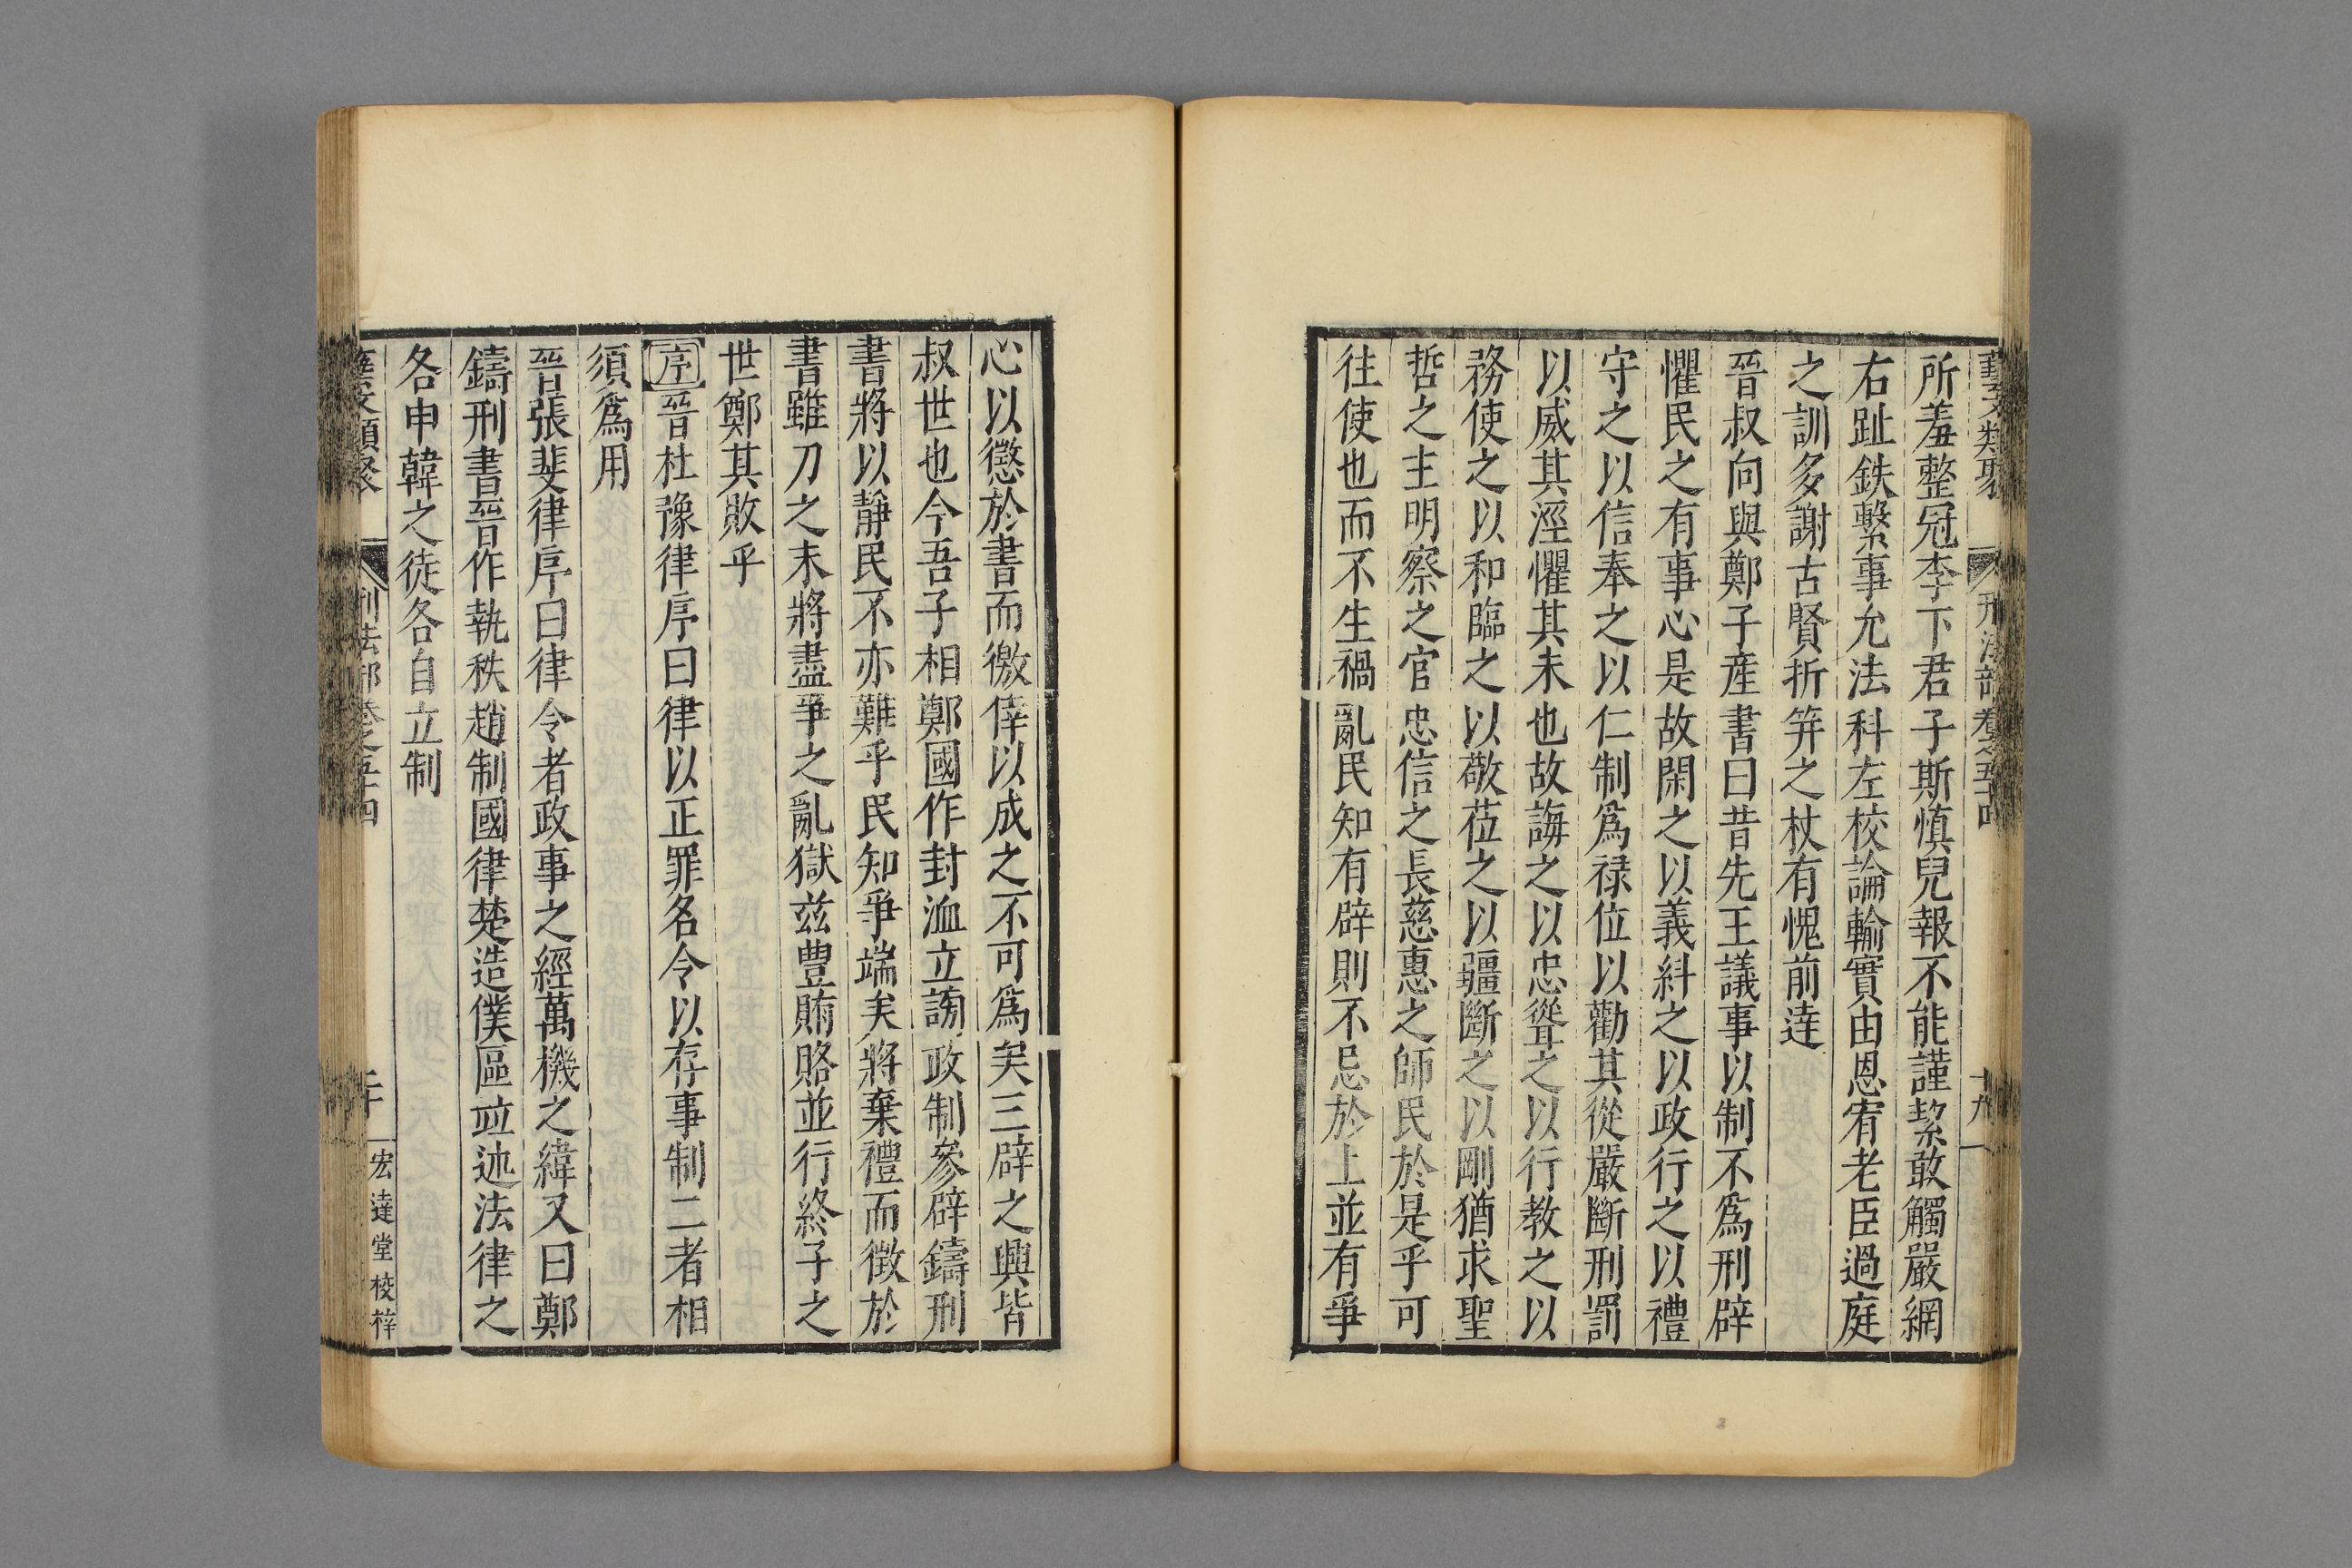 藝文類聚 刑法部卷之五十四 十九
所羞整冠李下君子斯慎兒報不能謹絜敢觸嚴網
右趾鉄繫事允法科左校論輸實由恩宥老臣過庭
之訓多謝古賢折笄之杖有愧前達
晉叔向與鄭子產書曰昔先王議事以制不爲刑辟
懼民之有事心是故閑之以義糾之以政行之以禮
守之以信奉之以仁制爲禄位以勸其從嚴斷刑罰
以威其淫懼其未也故誨之以忠聳之以行教之以
務使之以和臨之以敬莅之以疆斷之以剛猶求聖
哲之主明察之官忠信之長慈惠之師民於是乎可
往使也而不生禍亂民知有辟則不忌於上並有爭
心以懲於書而徼倖以成之不可爲矣三辟之興皆
叔世也今吾子相鄭國作封洫立謗政制參辟鑄刑
書將以靜民不亦難乎民知爭端矣將棄禮而徵於
書雖刀之末將盡爭之亂獄兹豊賄賂並行終子之
世鄭其敗乎
序晉杜豫律序曰律以正罪名令以存事制二者相
須爲用
晉張斐律序曰律令者政事之經萬機之緯又曰鄭
鑄刑書晉作執秩趙制國律楚造僕區竝述法律之
各申韓之徒各自立制
藝文類聚 刑法部卷之五十四 二十 宏達堂校梓